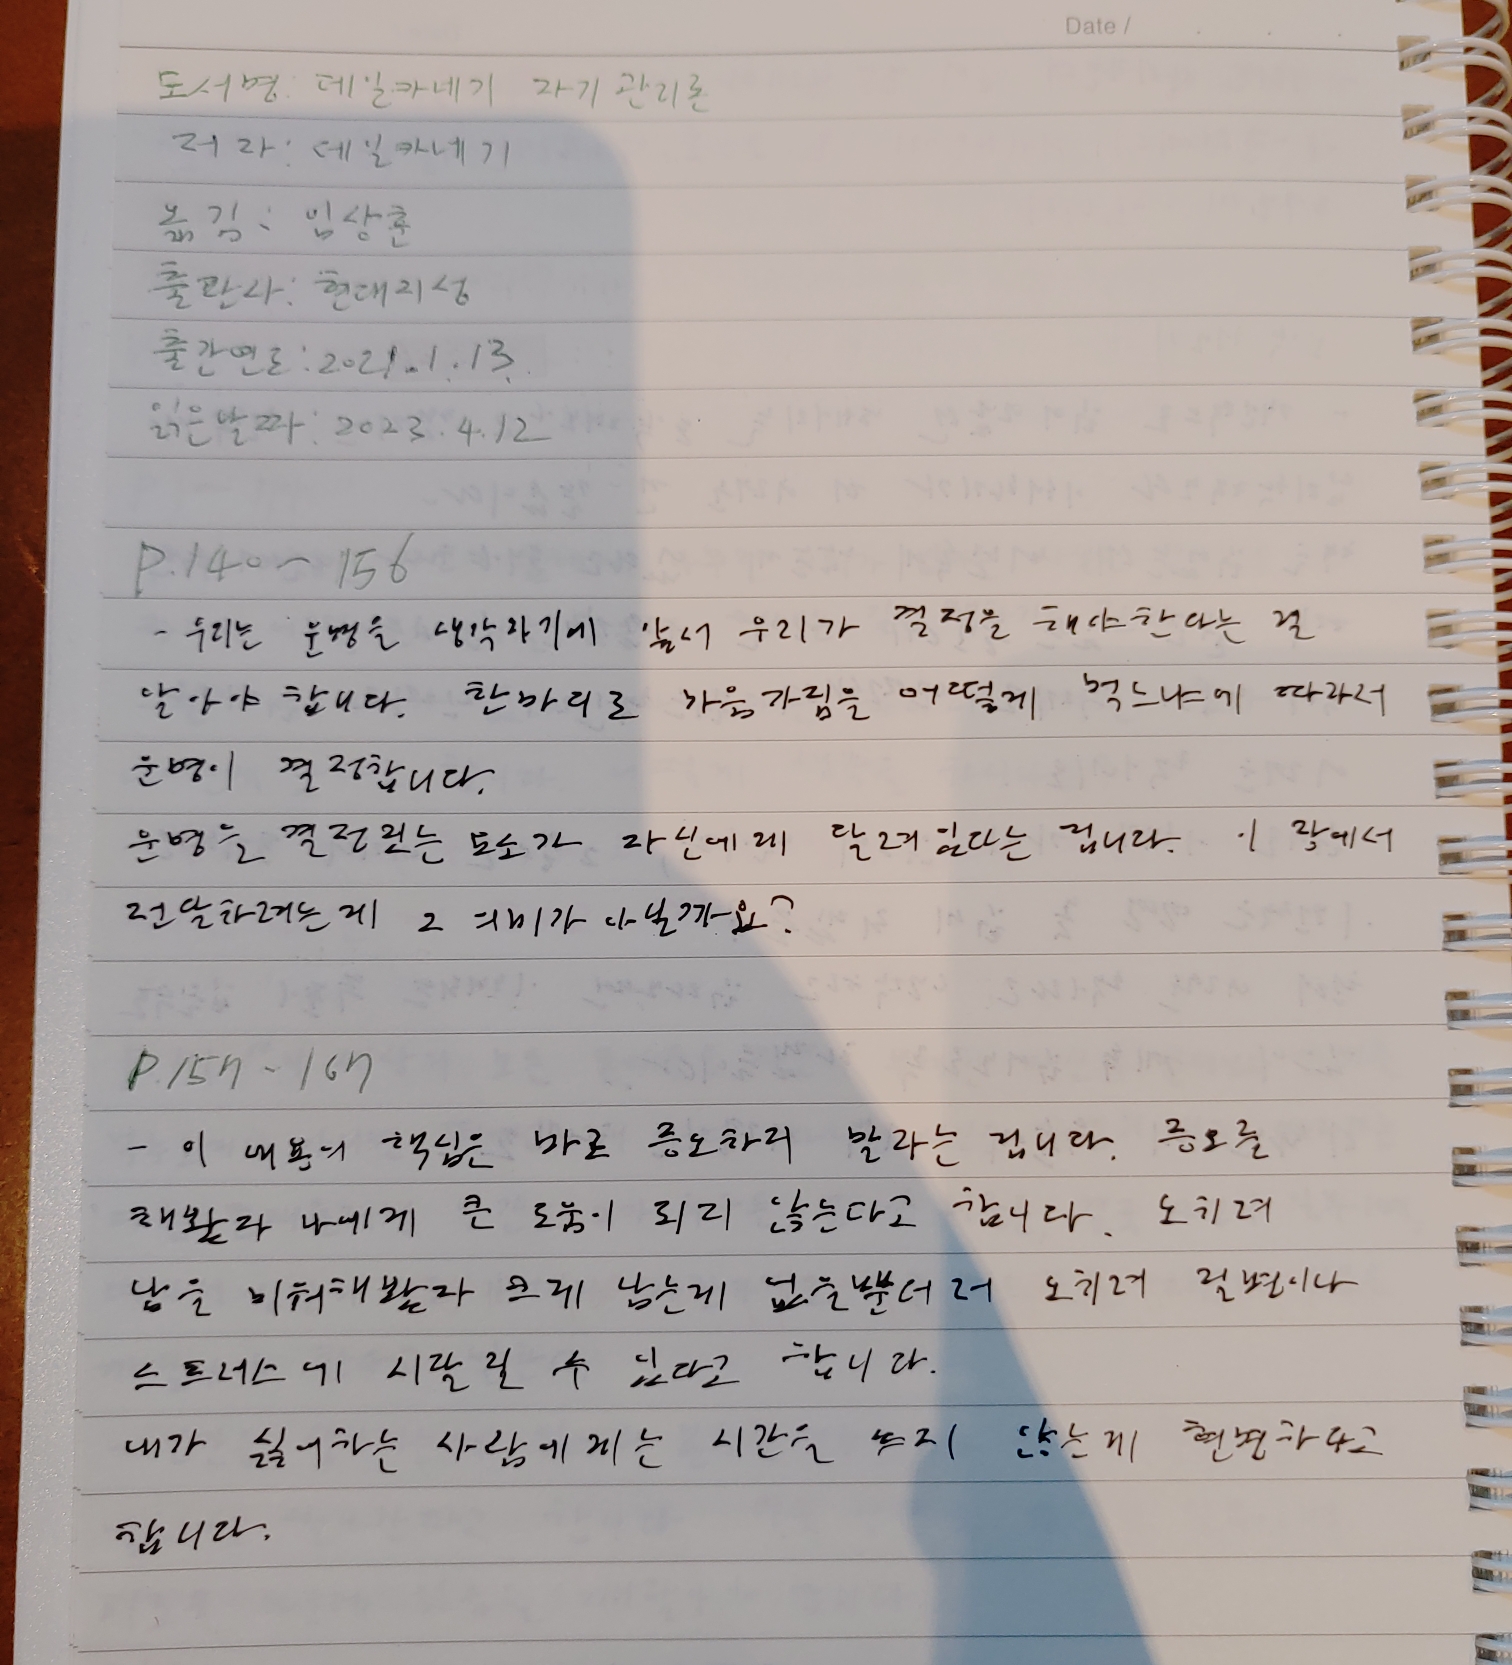 Date /
도서명: 데일카네기 자기관리론
저자: 데일카네기
옮김: 임상훈
출판사: 현대지성
출간연도: 2021.1.13.
읽은날짜: 2023.4.12
P.140~156
- 우리는 운명을 생각하기에 앞서 우리가 결정을 해야한다는 걸
알아야 합니다. 한마디로 마음가짐을 어떻게 먹느냐에 따라서
운명이 결정합니다.
운명을 결정짓는 요소가 자신에게 달려있다는 겁니다. 이 장에서
전달하려는게 그 의미가 아닐까요?
P.157~167
- 이 내용의 핵심은 바로 증오하지 말라는 겁니다. 증오를
해봤자 나에게 큰 도움이 되지 않는다고 합니다. 오히려
남을 미워해봤자 크게 남는게 없을뿐더러 오히려 질병이나
스트레스에 시달릴 수 있다고 합니다.
내가 싫어하는 사람에게는 시간을 쓰지 않는게 현명하다고
합니다.